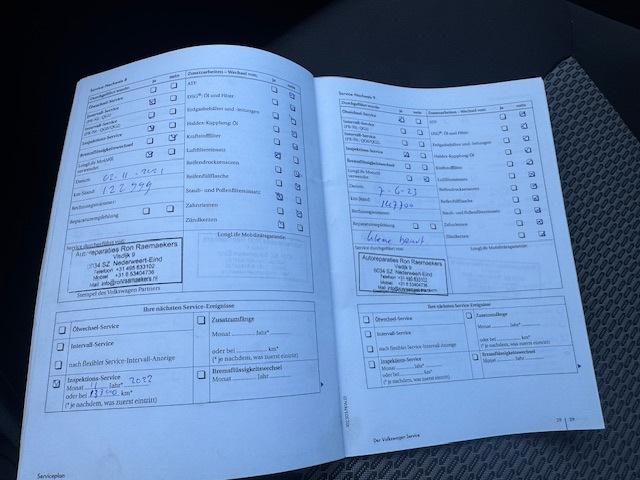 Service-Nachweis 8
Durchgeführt wurde: ja nein
Ölwechsel-Service
Intervall-Service
Intervall-Service
Inspektions-Service
Bremsflüssigkeitswechsel
LongLife Motoröl
verwendet
Datum: 02-11-2021
Km-Stand: 122999
Rechnungsnummer:
Reparaturempfehlung
Zusatzarbeiten – Wechsel von: ja nein
ATF
DSG®-Öl und Filter
Erdgasbehälter und -leitungen
Haldex-Kupplung-Öl
Kraftstofffilter
Luftfiltereinsatz
Reifendrucksensoren
Reifenfüllflasche
Staub- und Pollenfiltereinsatz
Zahnriemen
Zündkerzen
Service durchgeführt von:
LongLife Mobilitätsgarantie:
Autoreparaties Ron Raemaekers
Visdijk 9
6034 SZ Nederweert-Eind
Telefoon +31 495 633102
Mobiel +31 6 53404736
Mail: info@ronraemaekers.nl
Stempel des Volkswagen Partners
Ihre nächsten Service-Ereignisse
Ölwechsel-Service
Intervall-Service
nach flexibler Service-Intervall-Anzeige
Inspektions-Service
Monat 11 Jahr* 2022
oder bei km*
(* je nachdem, was zuerst eintritt)
Zusatzumfänge
Monat Jahr*
oder bei km*
(* je nachdem, was zuerst eintritt)
Bremsflüssigkeitswechsel
Monat Jahr
Serviceplan
Service-Nachweis 9
Durchgeführt wurde: ja nein
Ölwechsel-Service
Intervall-Service
Intervall-Service
Inspektions-Service
Bremsflüssigkeitswechsel
LongLife Motoröl
verwendet
Datum: 7-6-23
Km-Stand: 147700
Rechnungsnummer:
Reparaturempfehlung
Kleine beurt
Zusatzarbeiten – Wechsel von: ja nein
ATF
DSG®-Öl und Filter
Erdgasbehälter und -leitungen
Haldex-Kupplung-Öl
Kraftstofffilter
Luftfiltereinsatz
Reifendrucksensoren
Reifenfüllflasche
Staub- und Pollenfiltereinsatz
Zahnriemen
Zündkerzen
Service durchgeführt von:
LongLife Mobilitätsgarantie:
Autoreparaties Ron Raemaekers
Visdijk 9
6034 SZ Nederweert-Eind
Telefoon +31 495 633102
Mobiel +31 6 53404736
Mail: info@ronraemaekers.nl
Ihre nächsten Service-Ereignisse
Ölwechsel-Service
Intervall-Service
nach flexibler Service-Intervall-Anzeige
Inspektions-Service
Monat Jahr*
oder bei km*
(* je nachdem, was zuerst eintritt)
Zusatzumfänge
Monat Jahr*
oder bei km*
(* je nachdem, was zuerst eintritt)
Bremsflüssigkeitswechsel
Monat Jahr
Der Volkswagen Service